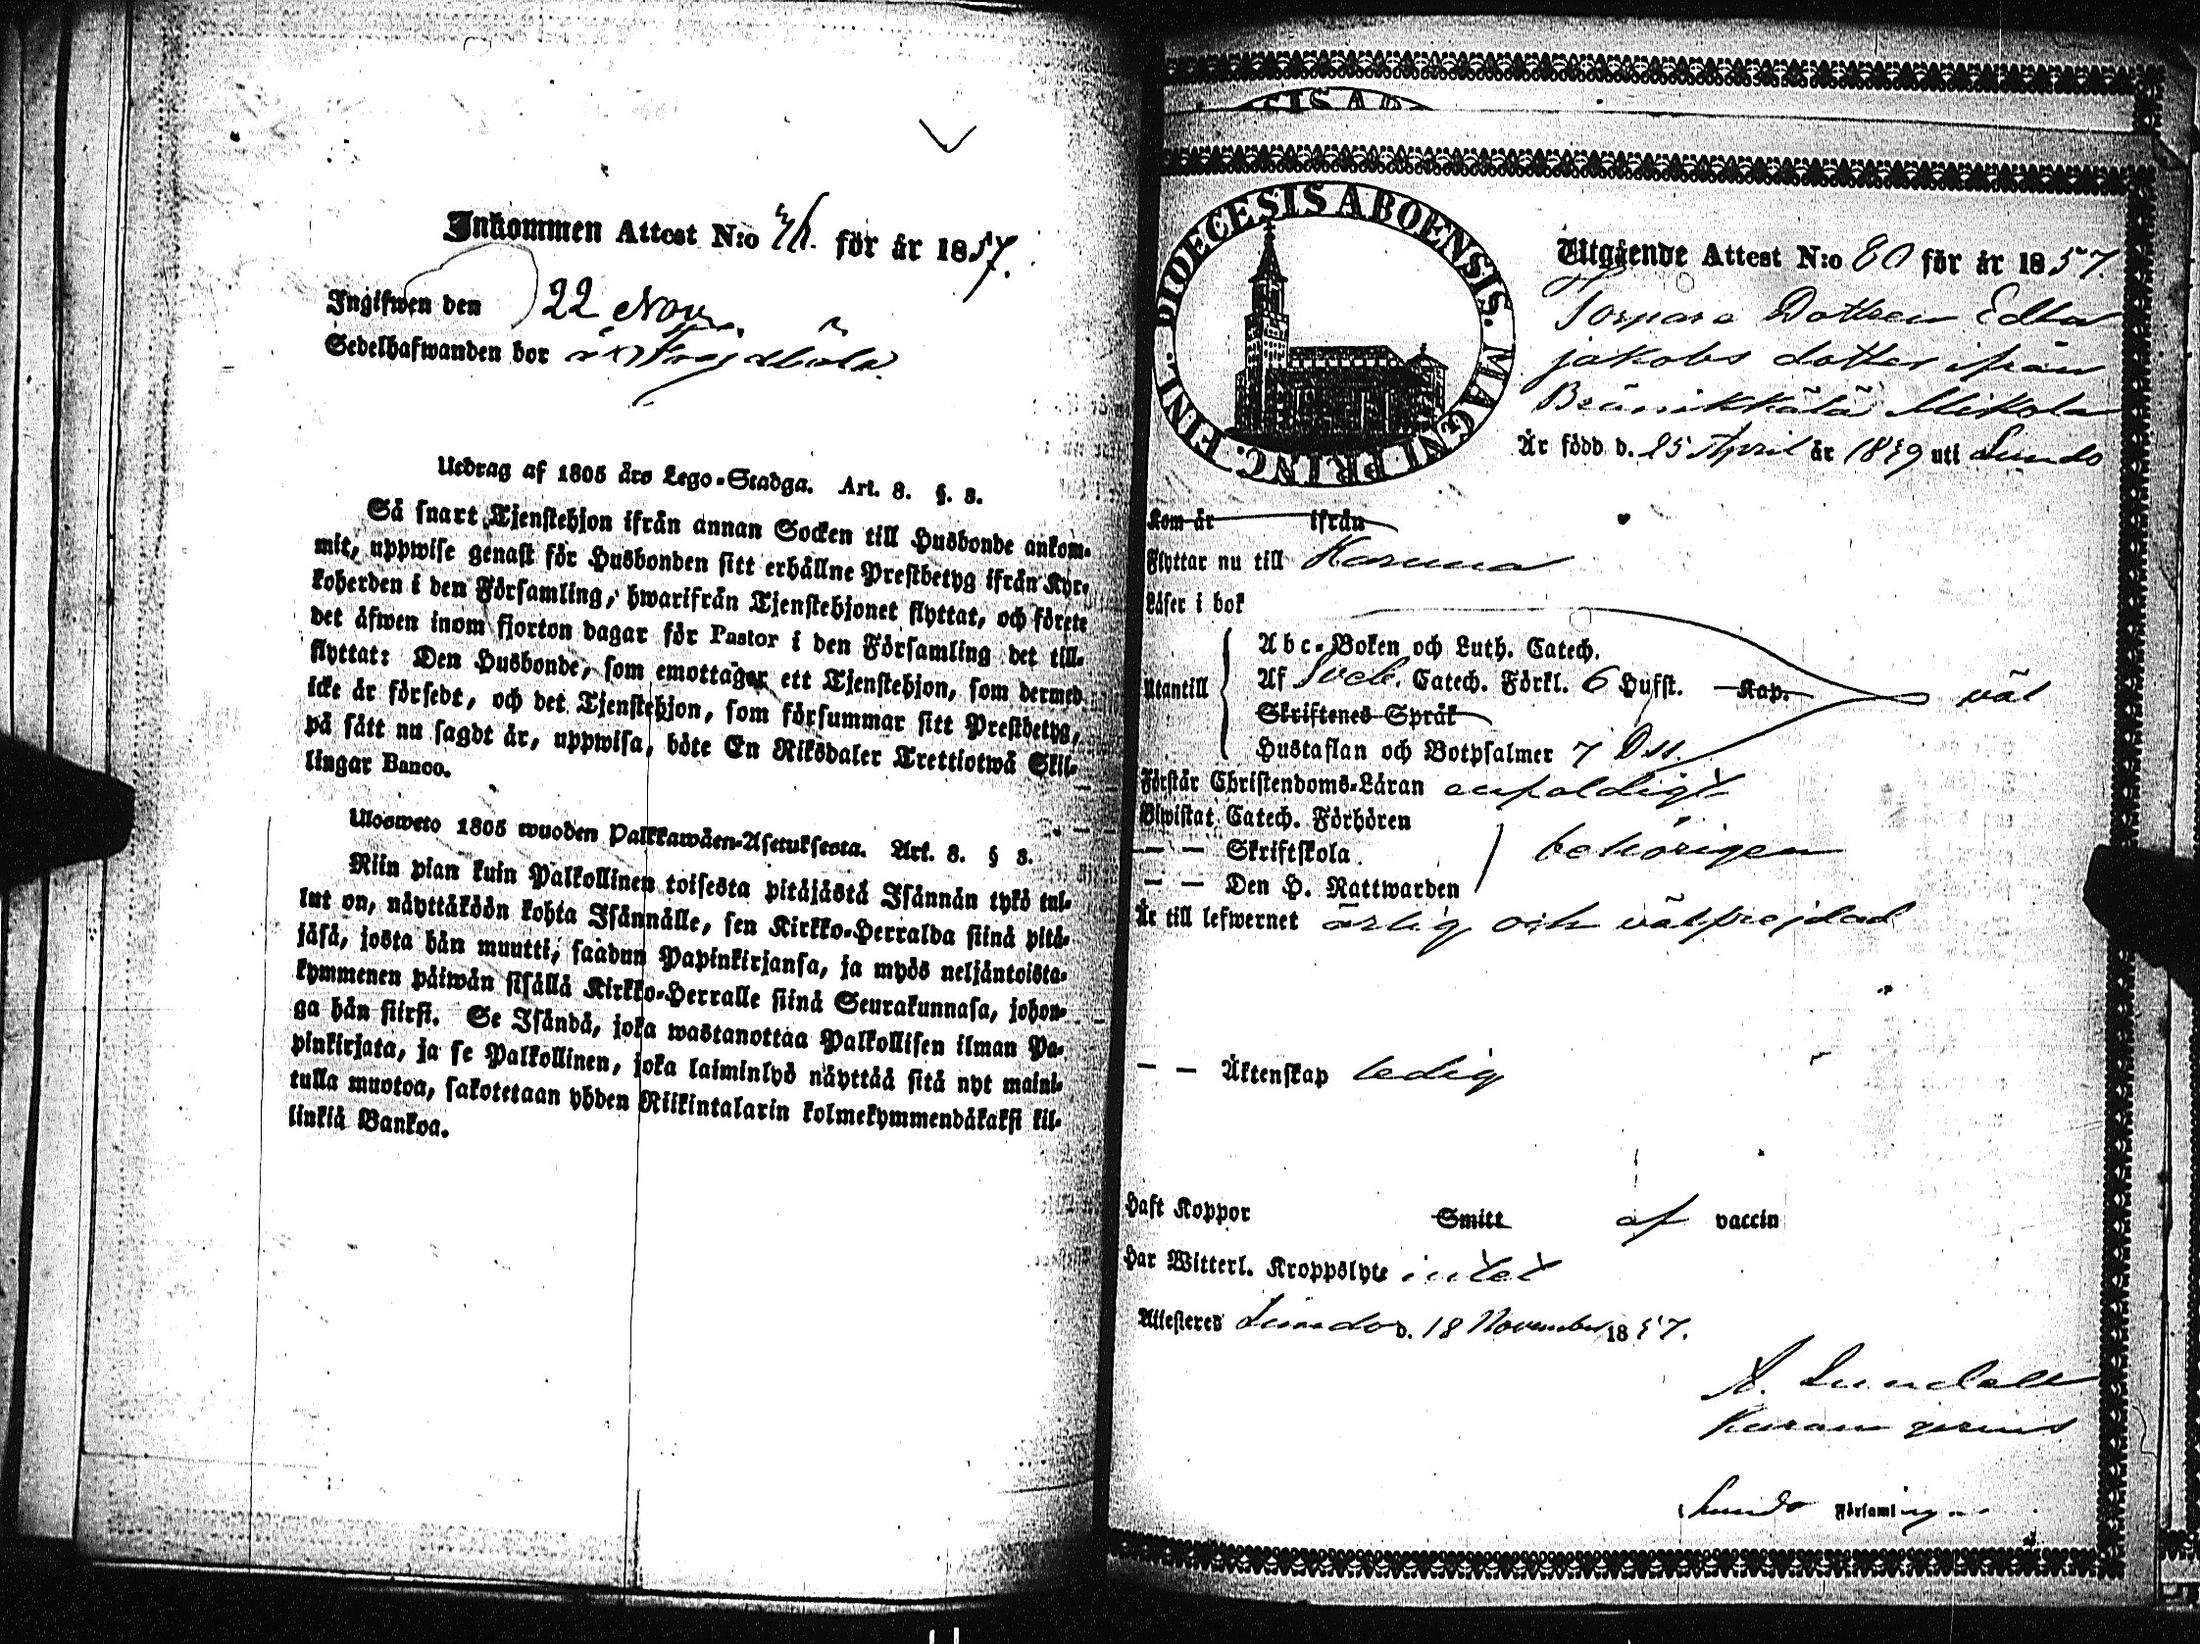 Inkommen Attest N:o 46. för år 1857.
Ingifwen den 22 Nov.
Sedelhafwanden bor
Utdrag af 1805 års Lego-Stadga. Art. 8. §. 8.
Så snart Tjenstehjon ifrån annan Socken till Husbonde ankom-
mit, uppwise genast för Husbonden sitt erhållne Prestbetyg ifrån Kyr-
koherden i den Församling, hwarifrån Tjenstehjonet flyttat, och förete
det äfwen inom fjorton dagar för Pastor i den Församling det till-
flyttat: Den Husbonde, som emottager ett Tjenstehjon, som dermed
icke är försedt, och det Tjenstehjon, som försummar sitt Prestbetyg,
på sätt nu sagdt är, uppwisa, böte En Riksdaler Trettiotwå Skil-
lingar Banco.
Ulosweto 1805 wuoden Palkkawäen-Asetuksesta. Art. 8. § 8.
Niin pian kuin Palkollinen toisesta pitäjästä Isännän tykö tul-
lut on, näyttäköön kohta Isännälle, sen Kirkko-Herralda siinä pitä-
jäsä, josta hän muutti, saadun Papinkirjansa, ja myös neljäntoista-
kymmenen päiwän sisällä Kirkko-Herralle siinä Seurakunnasa, johon-
ga hän siirsi. Se Isändä, joka wastanottaa Palkollisen ilman Pa-
pinkirjata, ja se Palkollinen, joka laiminlyö näyttää sitä nyt maini-
tulla muotoa, sakotetaan yhden Riikintalarin kolmekymmendäkaksi kil-
linkiä Bankoa.
DIOECESIS ABOENSIS. MAGNI PRINC. FINL.
Utgående Attest N:o 80 för år 1857.
Torpare Dottren Edla
Jakobs dotter ifrån
Bränikkälä Mikola
Är född d. 25 April år 1839 uti Lundo
Kom år ifrån
Flyttar nu till Karuna
Läser i bok
Utantill
Abc-Boken och Luth. Catech.
Af Sveb. Catech. Förkl. 6 Hufst. Kap. väl
Skriftenes Språk
Hustaflan och Botpsalmer 7 Dss.
Förstår Christendoms-Läran enfaldigt
Biwistat Catech. Förhören
— — Skriftskola behörigen
— — Den H. Nattwarden
Är till lefwernet ärlig och välfrejdad
— — Äktenskap ledig
Haft Koppor Smitt af vaccin
Har Witterl. Kroppslyte intet
Attesteres Lundo d. 18 November 1857.
A. Lundell
Lundo Församling